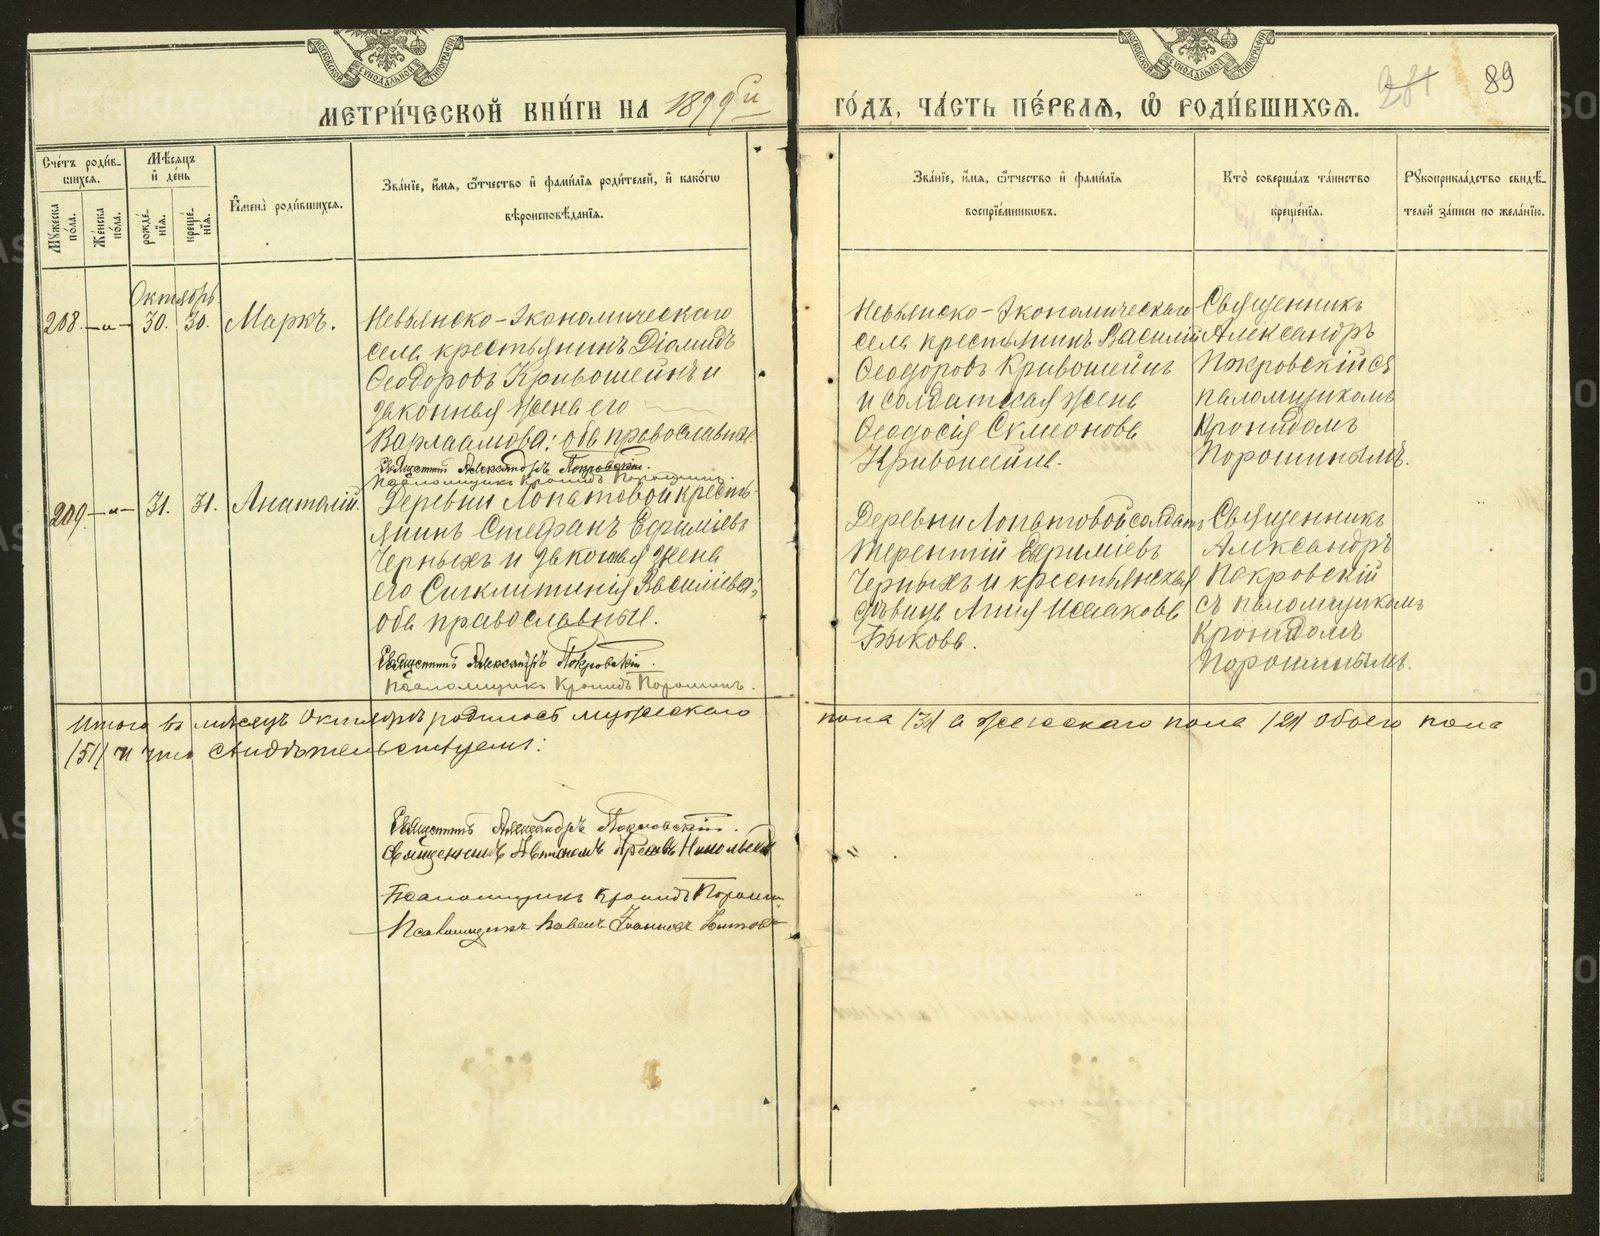 МОСКОВСКОЙ СѴНОДАЛЬНОЙ ТИПОГРАФІИ
МОСКОВСКОЙ СѴНОДАЛЬНОЙ ТИПОГРАФІИ
МЕТРИ́ЧЕСКОЙ КНИ́ГИ НА 1899й
ГО́ДЪ, ЧА́СТЬ ПЕ́РВАЯ, Ѡ РОДИ́ВШИХСЯ.
89
Сче́тъ роди́вшихся.
Му́жеска по́ла.
Же́нска по́ла.
Мѣ́сяцъ и҆ де́нь
рожде́нїя.
креще́нїя.
И҆мена̀ роди́вшихся.
Зва́нїе, и҆́мя, ѻ҆́тчество и҆ фами́лїя роди́телей, и҆ како́гѡ
вѣроисповѣ́данїя.
Зва́нїе, и҆́мя, ѻ҆́тчество и҆ фами́лїя
воспрїе́мникѡвъ.
Кто̀ соверша́лъ та́инство
креще́нїя.
Рꙋкоприкла́дство свидѣ́-
телей за́писи по жела́нїю.
Октябрь
208. — „ — 30. 30. Маркъ.
Невьянско-Экономическаго
села крестьянинъ Діомидъ
Ѳеодоровъ Кривошеинъ и
законная жена его
Варлаамова; оба православные.
Священникъ Александръ Покровскій.
Псаломщикъ Кронидъ Порошинъ.
Невьянско-Экономическаго
села крестьянинъ Василій
Ѳеодоровъ Кривошеинъ
и солдатская жена
Ѳеодосія Симеонова
Кривошеина.
Священникъ
Александръ
Покровскій съ
псаломщикомъ
Кронидомъ
Порошинымъ.
209. — „ — 31. 31. Анатолій.
Деревни Лопатовой кресть-
янинъ Стефанъ Ефиміевъ
Черныхъ и законная жена
его Синклитикія Василіева;
оба православные.
Священникъ Александръ Покровскій.
Псаломщикъ Кронидъ Порошинъ.
Деревни Лопатовой солдатъ
Терентій Ефиміевъ
Черныхъ и крестьянская
дѣвица Анна Исаакова
Быкова.
Священникъ
Александръ
Покровскій
съ псаломщикомъ
Кронидомъ
Порошинымъ.
Итого въ мѣсяцѣ Октябрѣ родилось мужескаго пола /31/ а женскаго пола /20/ обоего пола
/51/ и что свидѣтельствуемъ:
Священникъ Александръ Покровскій.
Священникъ
Псаломщикъ Кронидъ Порошин
Псаломщикъ Павелъ Іоанновъ
METRIKI.GASO-URAL.RU